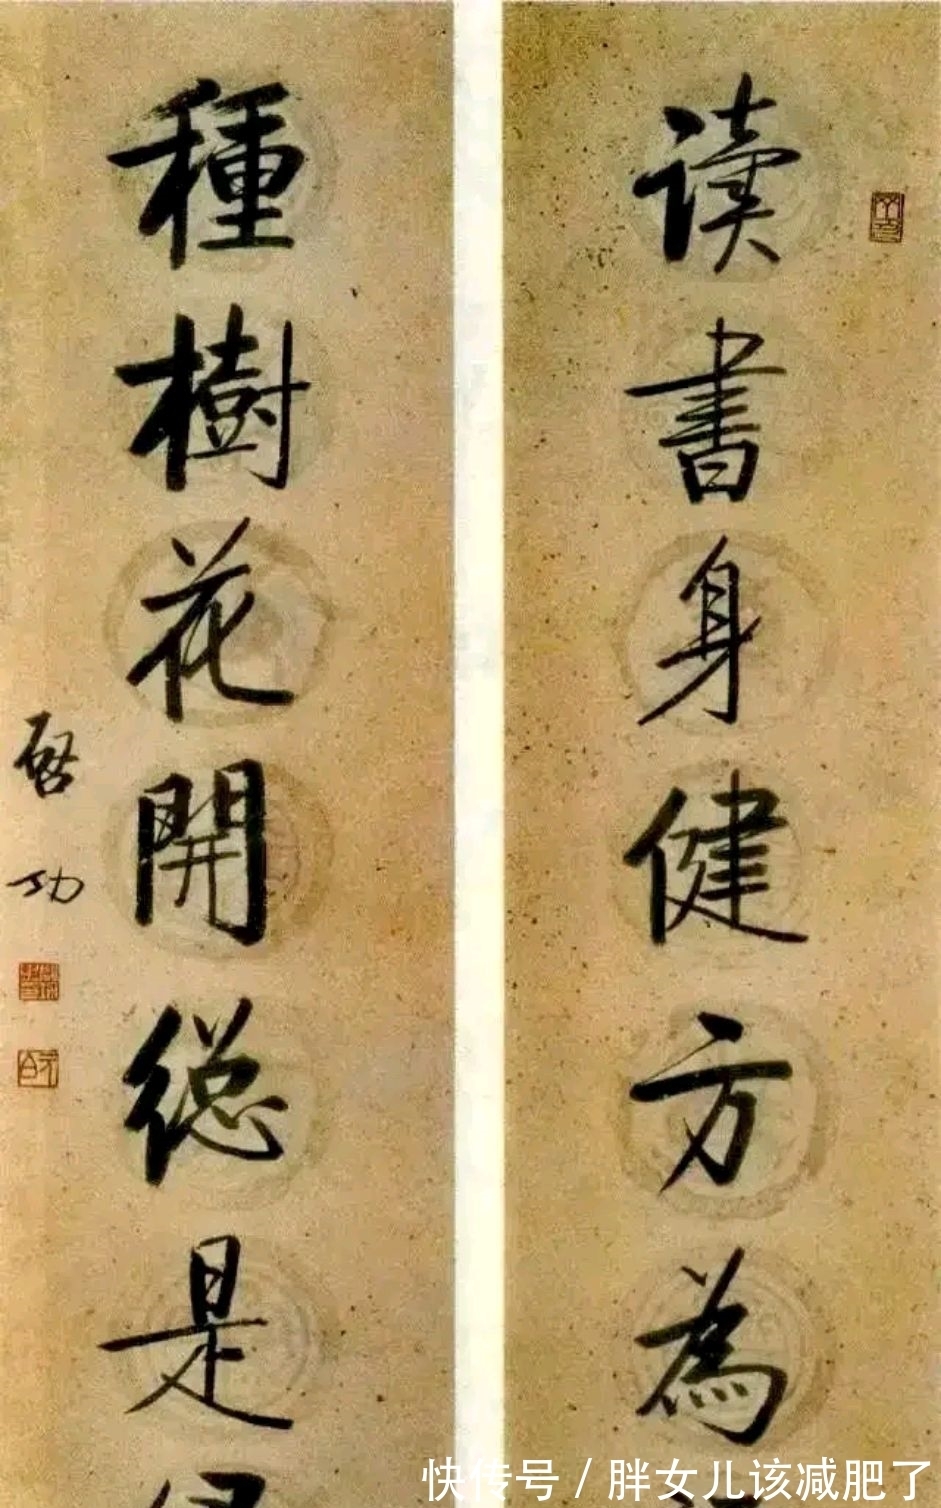 读书身健方为
種樹花開総是
啓功
快传号 / 胖女儿该减肥了